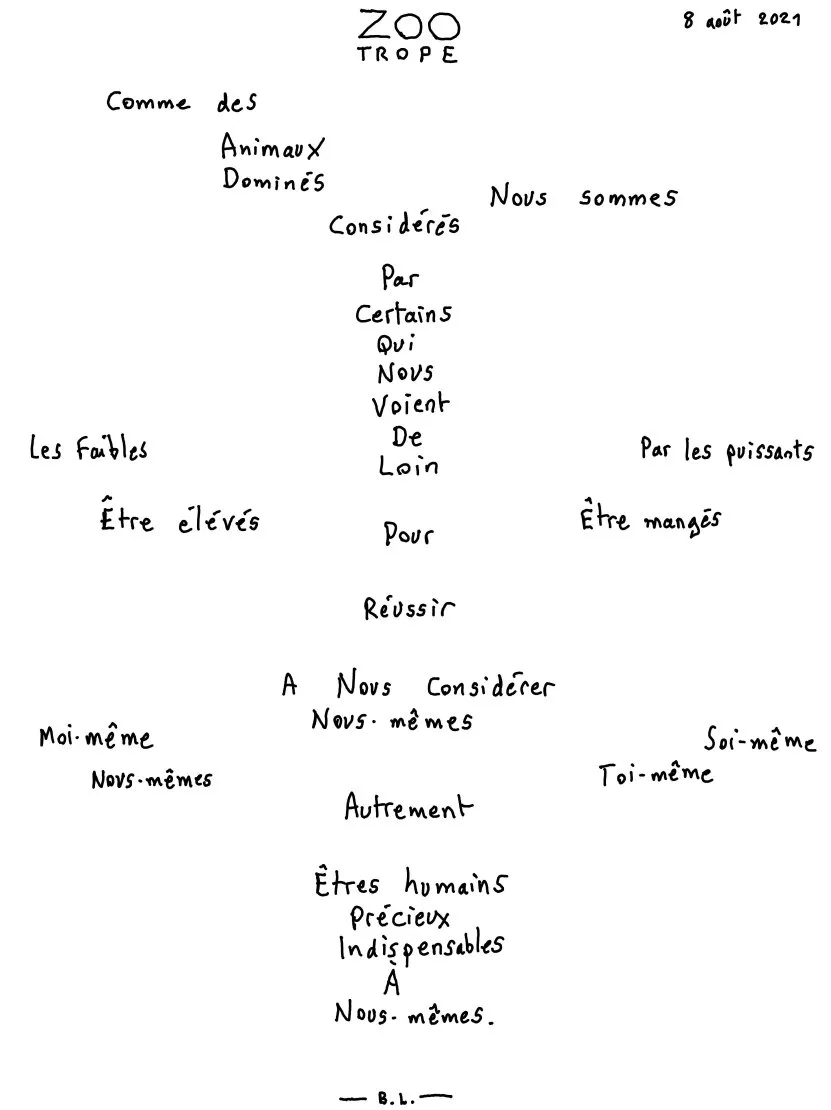 ZOO
TROPE
8 août 2021
Comme des
Animaux
Dominés
Nous sommes
Considérés
Par
Certains
Qui
Nous
Voient
De
Les Faibles
Par les puissants
Loin
Être élévés
Être mangés
Pour
Réussir
A Nous Considérer
Nous-mêmes
Moi-même
Soi-même
Nous-mêmes
Toi-même
Autrement
Êtres humains
Précieux
Indispensables
À
Nous-mêmes.
— B.L. —